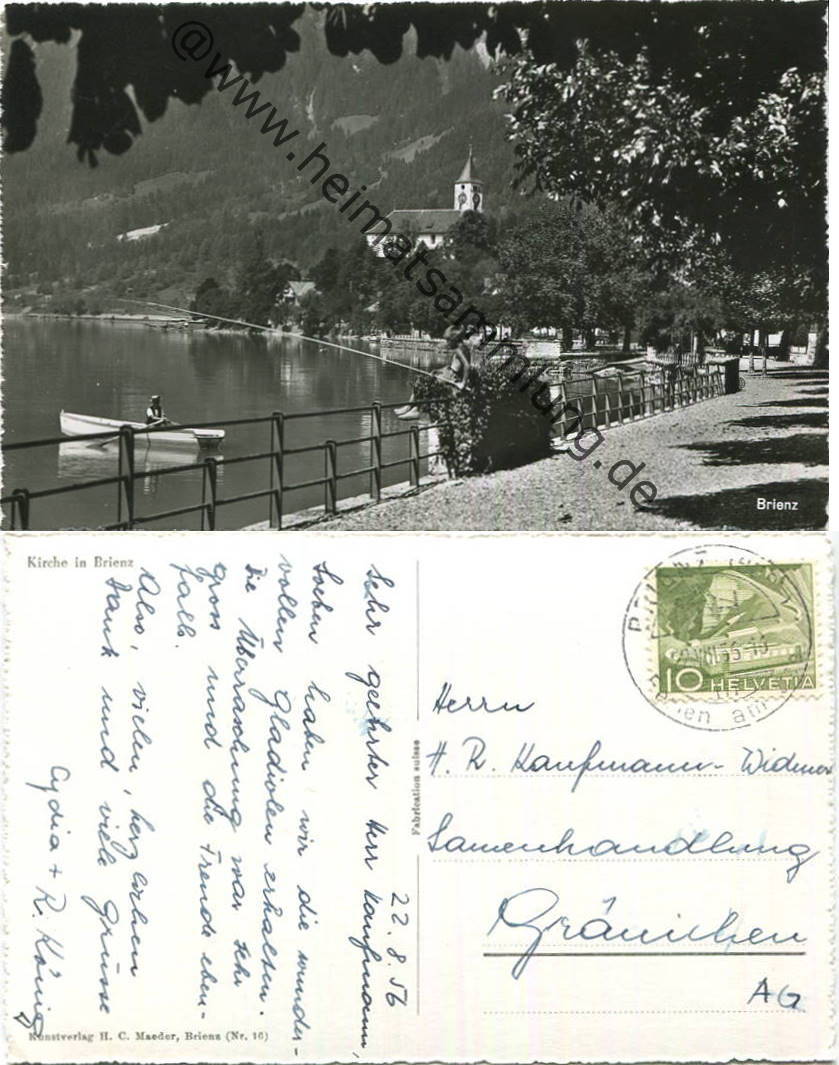 @www.heimatsammlung.de
Brienz
Kirche in Brienz
22.8.56
Sehr geehrter Herr Kaufmann,
Soeben haben wir die wunder-
vollen Gladiolen erhalten.
Die Überraschung war sehr
gross und die Freude eben-
falls.
Also, vielen, herzlichen
Dank und viele Grüsse
Lydia + R. König
Kunstverlag H. C. Maeder, Brienz (Nr. 16)
Fabrication suisse
HELVETIA
10
Herrn
H. R. Kaufmann-Widmer
Samenhandlung
Gränichen
AG